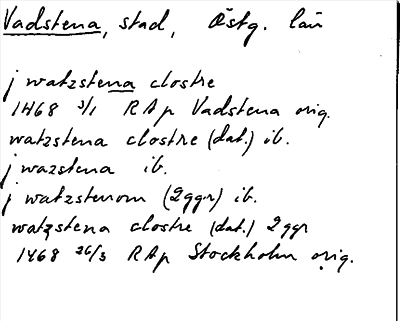 Vadstena, stad, Östg. län
j watzstena clostre
1468 3/1 RAp Vadstena orig.
watzstena clostre (dat.) ib.
j wazstena ib.
j watzstenom (2ggr) ib.
watzstena clostre (dat.) 2ggr
1468 26/3 RAp Stockholm orig.